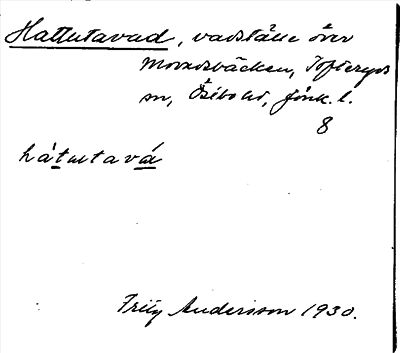 Hattutavad, vadställe över
Movadsbäcken, Tofteryds
sn, Östbo hd, Jönk. l.
8
hátutavá
Fritz Andersson 1930.